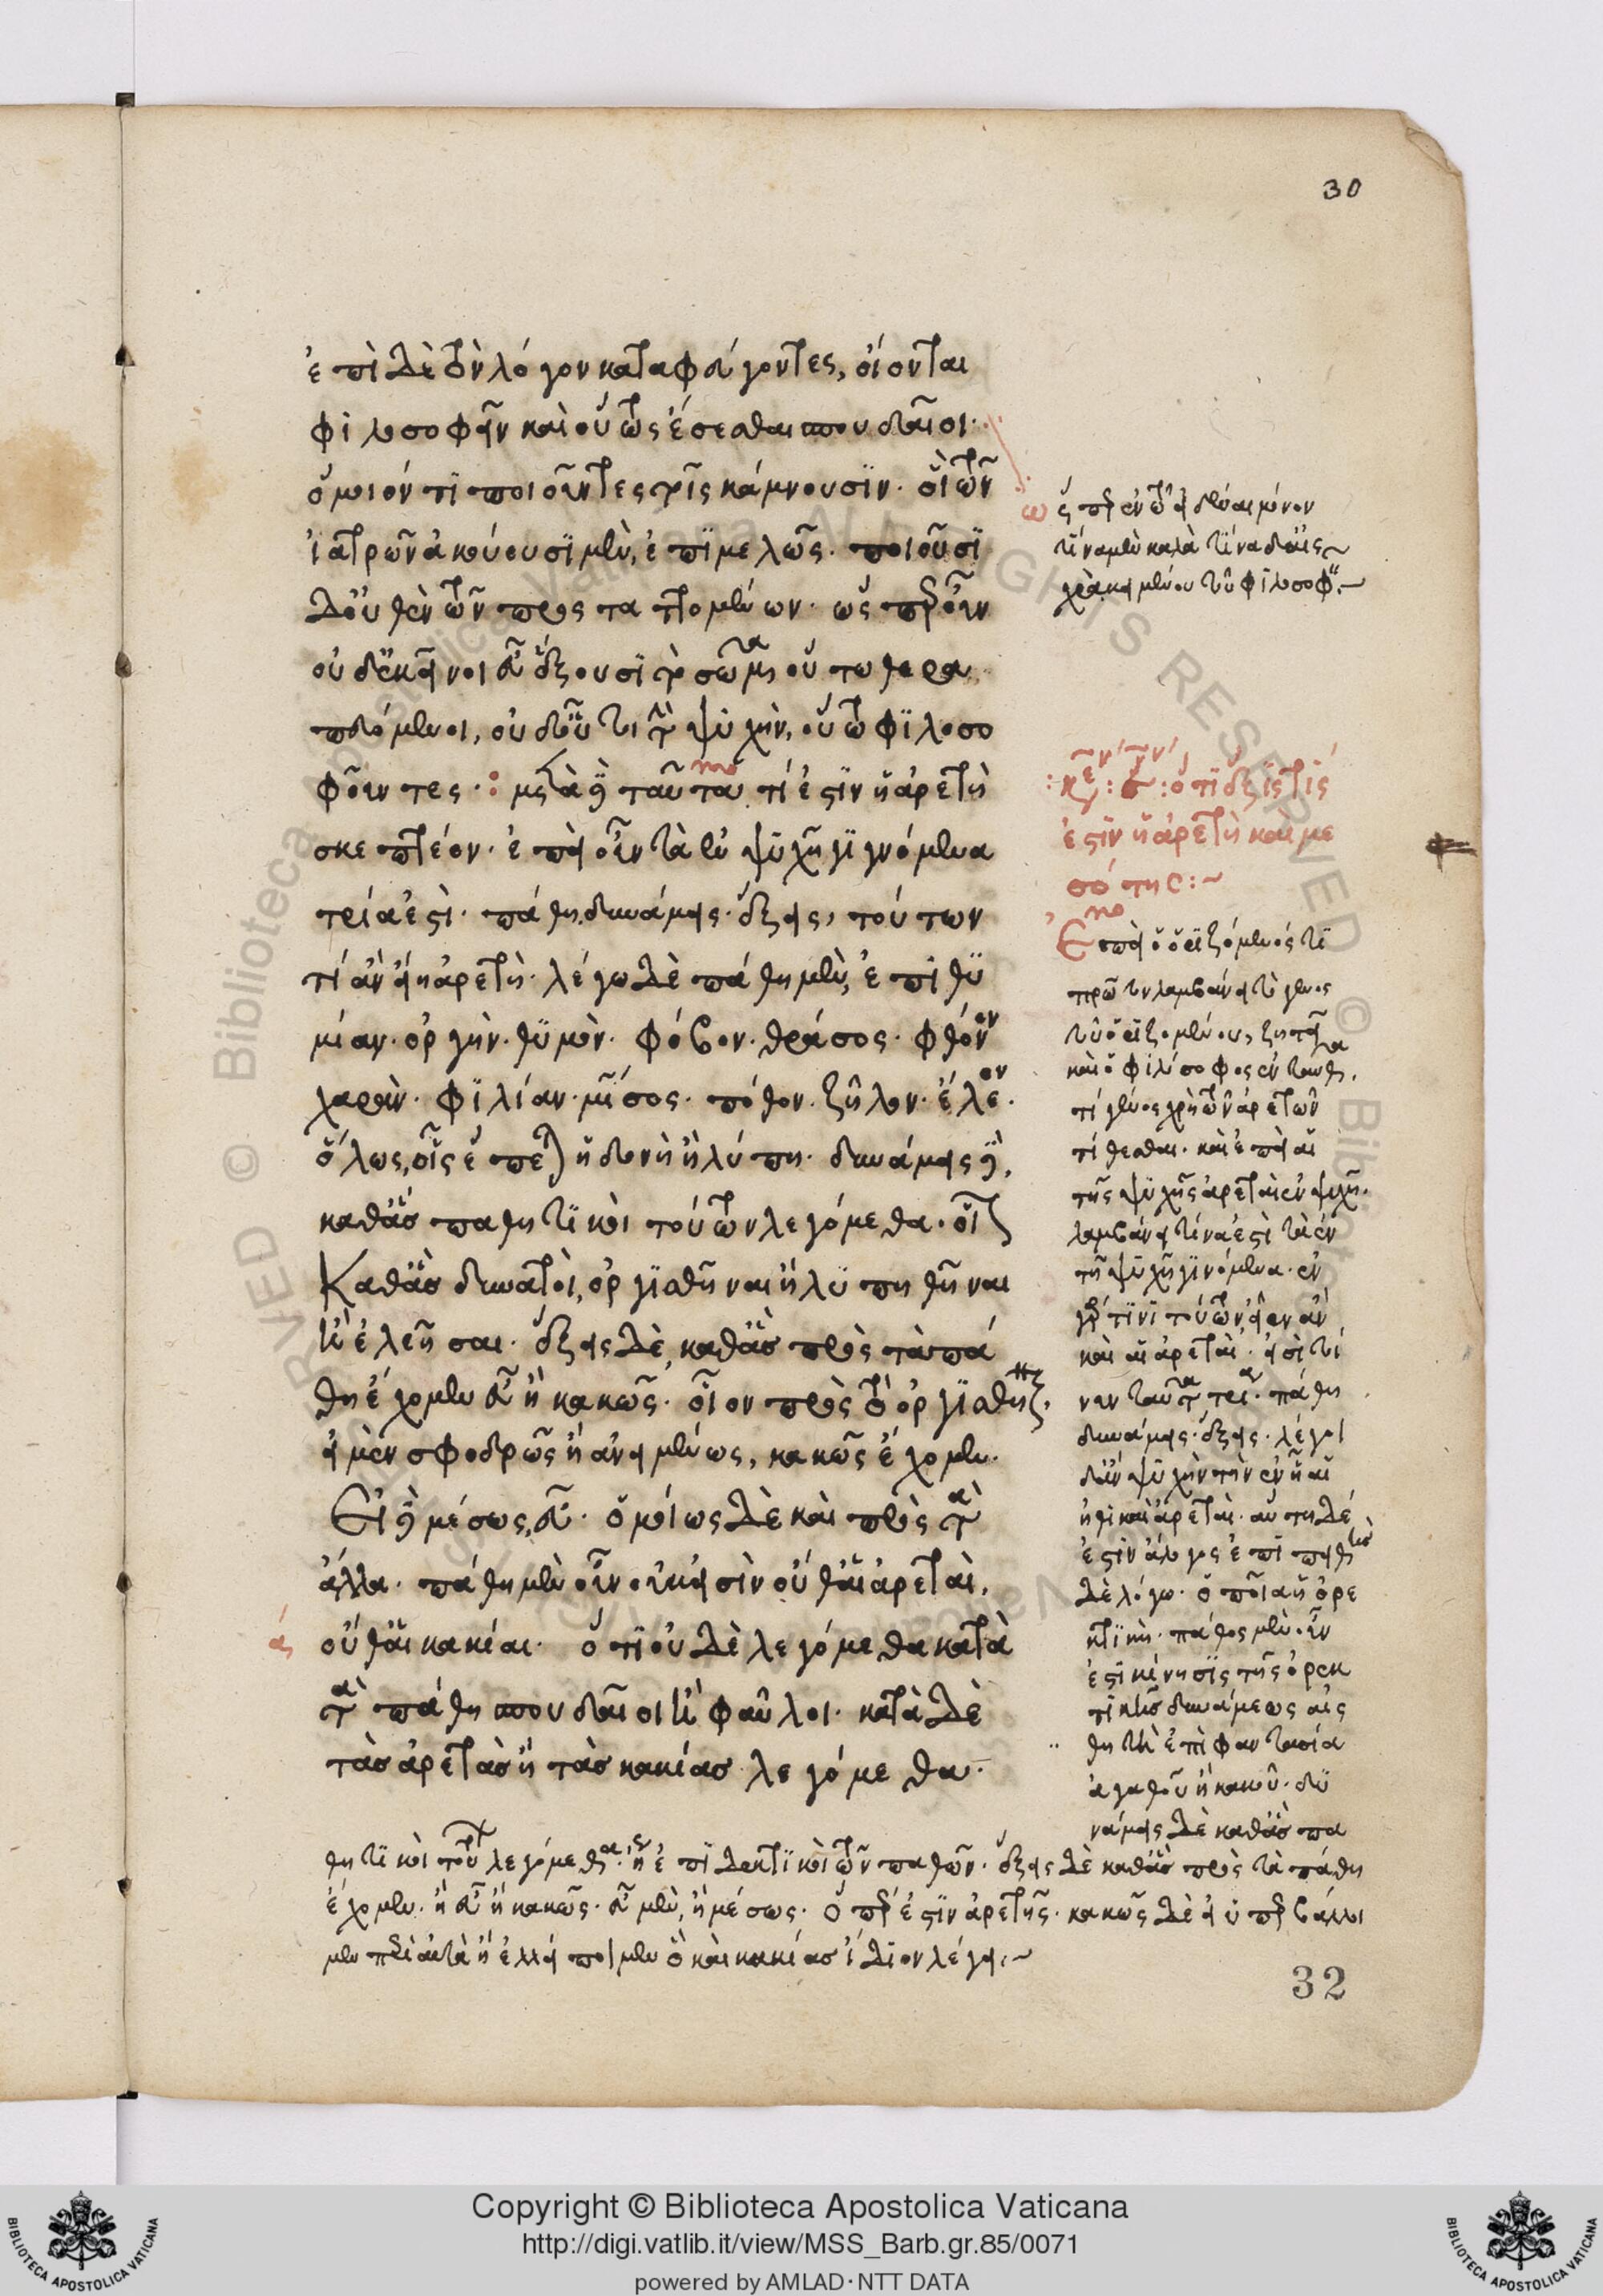 30
ἐπὶ δὲ τὸν λόγον καταφεύγοντες, οἴονται
φιλοσοφεῖν καὶ οὕτως ἔσεσθαι σπουδαῖοι·
ὅμοιόν τι ποιοῦντες τοῖς κάμνουσιν· οἳ τῶν
ἰατρῶν ἀκούουσι μὲν, ἐπιμελῶς· ποιοῦσι
δ' οὐθὲν τῶν προσταττομένων· ὥσπερ οὖν
οὐδ' ἐκεῖνοι εὖ ἕξουσι τὸ σῶμα οὕτω θερα
πευόμενοι, οὐδ' οὗτοι τὴν ψυχὴν, οὕτω φιλοσο
φοῦντες · : μετὰ δὲ ταῦτα τί ἐστιν ἡ ἀρετὴ
σκεπτέον· ἐπεὶ οὖν τὰ ἐν ψυχῇ γιγνόμενα
τρία ἐστὶ· πάθη, δυνάμεις· ἕξεις, τούτων
τί ἂν εἴη ἀρετὴ· λέγω δὲ πάθη μὲν, ἐπιθυ
μίαν· ὀργὴν· θυμὸν· φόβον· θράσος· φθόνον
χαρὰν· φιλίαν· μῖσος· πόθον· ζῆλον· ἔλεον·
ὅλως, οἷς ἕπεται ἡδονὴ ἢ λύπη· δυνάμεις δὲ,
καθ' ἃς παθητικοὶ τούτων λεγόμεθα· οἷον
καθ' ἃς δυνατοὶ, ὀργισθῆναι ἢ λυπηθῆναι
ἢ ἐλεῆσαι· ἕξεις δὲ, καθ' ἃς πρὸς τὰ πά
θη ἔχομεν εὖ ἢ κακῶς· οἷον πρὸς τὸ ὀργισθῆναι·
εἰ μὲν σφοδρῶς ἢ ἀνειμένως, κακῶς ἔχομεν·
Εἰ δὲ μέσως, εὖ· ὁμοίως δὲ καὶ πρὸς τὰ
ἄλλα· πάθη μὲν οὖν οὐκ εἰσὶν οὔθ' αἱ ἀρεταὶ,
οὔθ' αἱ κακίαι· ὅτι οὐ δὲ λεγόμεθα κατὰ
τὰ πάθη σπουδαῖοι ἢ φαῦλοι· κατὰ δὲ
τὰς ἀρετὰς ἢ τὰς κακίας λεγόμεθα·
ὥσπερ ἐν τῷ εἰδέναι μόνον
τίνα μὲν καλὰ τίνα δ' αἰσ
χρὰ κειμένου τοῦ φιλοσοφεῖν
ὅτι ἕξις τίς
ἐστιν ἡ ἀρετὴ καὶ με
σότης :~
Ἐπεὶ ὁ ὁριζόμενός τι
πρῶτον λαμβάνει τὸ γένος
τοῦ ὁριζομένου, ζητεῖ
καὶ ὁ φιλόσοφος ἐνταῦθα,
τί γένος χρὴ τῶν ἀρετῶν
τίθεσθαι· καὶ ἐπεὶ αἱ
τῆς ψυχῆς ἀρεταὶ ἐν ψυχῇ·
λαμβάνει τίνα ἐστὶ τὰ ἐν
τῇ ψυχῇ γινόμενα· ἐν
γάρ τινι τούτων εἶεν ἂν
καὶ αἱ ἀρεταί· εἰσὶ τοί
νυν ταῦτα τρία· πάθη
δυνάμεις· ἕξεις· λέγει
δὲ ψυχὴν τὴν ἐν ᾗ αἱ
ἠθικαὶ ἀρεταὶ· αὕτη δέ
ἐστιν ἄλογος ἐπιπειθὴς
δὲ λόγῳ· ὁποία ἡ ὀρε
κτικὴ· πάθος μὲν οὖν
ἐστι κίνησις τῆς ὀρεκ
τικῆς δυνάμεως αἰσ
θητὴ ἐπὶ φαντασίᾳ
ἀγαθοῦ ἢ κακοῦ· δυ
νάμεις δὲ καθ' ἃς πα
θητικοὶ τούτων λεγόμεθα· ἢ ἐπιδεκτικοὶ τῶν παθῶν· ἕξεις δὲ καθ' ἃς πρὸς τὰ πάθη
ἔχομεν· ἢ εὖ ἢ κακῶς· εὖ μὲν, ἢ μέσως· ὅπερ ἐστὶν ἀρετῆς· κακῶς δὲ εἰ ὑπερβάλλοι
μεν περὶ αὐτὰ ἢ ἐλλείποιμεν ὃ καὶ κακίας ἴδιον λέγει·~
32
Copyright © Biblioteca Apostolica Vaticana
http://digi.vatlib.it/view/MSS_Barb.gr.85/0071
powered by AMLAD·NTT DATA